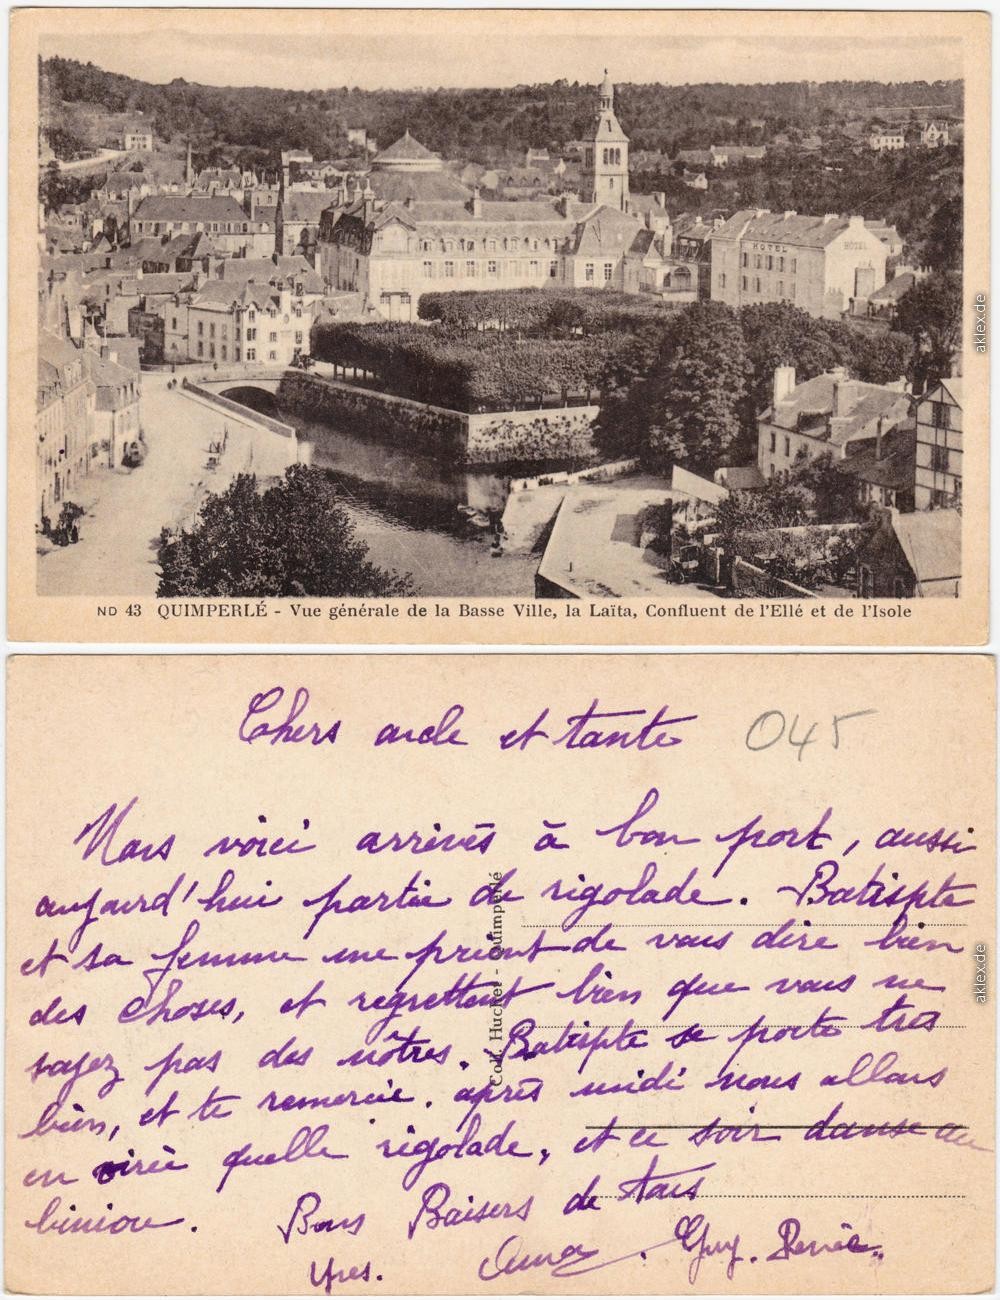 HOTEL
HOTEL
ND 43 QUIMPERLÉ - Vue générale de la Basse Ville, la Laïta, Confluent de l'Ellé et de l'Isole
aklex.de
Chers oncle et tante
045
Nous voici arrivés à bon port, aussi
aujourd'hui partie de rigolade. Batispte
et sa femme me prient de vous dire bien
des choses, et regrettent bien que vous ne
soyez pas des nôtres. Batispte se porte très
bien, et te remercie. après midi nous allons
en virée quelle rigolade, et ce soir danse au
biniou. Bons Baisers de tous
Yves. Anna. Guy. Renée.
Coll. Huchet - Quimperlé
aklex.de